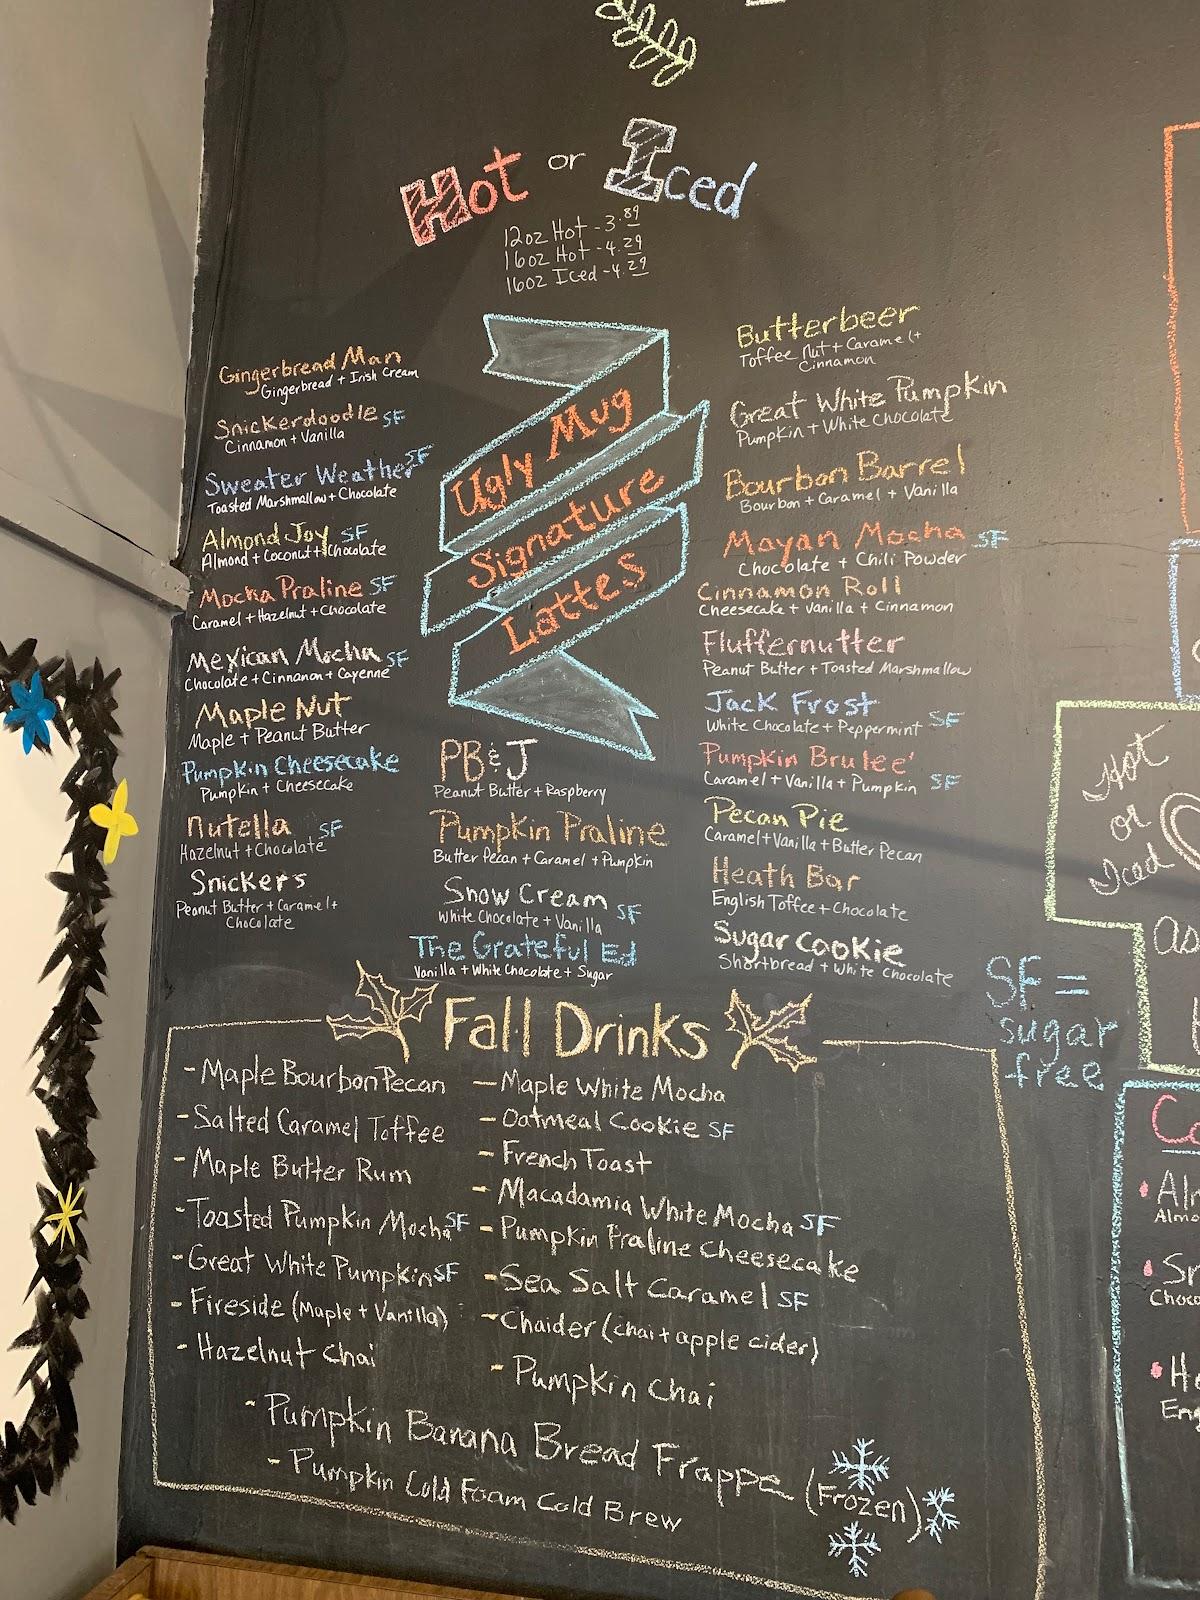 Hot or Iced
12oz Hot - 3.89
16oz Hot - 4.29
16oz Iced - 4.29
Ugly Mug
Signature
Lattes
Gingerbread Man
Gingerbread + Irish Cream
Snickerdoodle SF
Cinnamon + Vanilla
Sweater Weather SF
Toasted Marshmallow + Chocolate
Almond Joy SF
Almond + Coconut + Chocolate
Mocha Praline SF
Caramel + Hazelnut + Chocolate
Mexican Mocha SF
Chocolate + Cinnamon + Cayenne
Maple Nut
Maple + Peanut Butter
Pumpkin Cheesecake
Pumpkin + Cheesecake
Nutella SF
Hazelnut + Chocolate
Snickers
Peanut Butter + Caramel +
Chocolate
PB & J
Peanut Butter + Raspberry
Pumpkin Praline
Butter Pecan + Caramel + Pumpkin
Snow Cream SF
White Chocolate + Vanilla
The Grateful Ed
Vanilla + White Chocolate + Sugar
Butterbeer
Toffee Nut + Caramel +
Cinnamon
Great White Pumpkin
Pumpkin + White Chocolate
Bourbon Barrel
Bourbon + Caramel + Vanilla
Mayan Mocha SF
Chocolate + Chili Powder
Cinnamon Roll
Cheesecake + Vanilla + Cinnamon
Fluffernutter
Peanut Butter + Toasted Marshmallow
Jack Frost
White Chocolate + Peppermint SF
Pumpkin Brulee'
Caramel + Vanilla + Pumpkin SF
Pecan Pie
Caramel + Vanilla + Butter Pecan
Heath Bar
English Toffee + Chocolate
Sugar Cookie
Shortbread + White Chocolate
SF =
sugar
free
Fall Drinks
- Maple Bourbon Pecan
- Salted Caramel Toffee
- Maple Butter Rum
- Toasted Pumpkin Mocha SF
- Great White Pumpkin SF
- Fireside (Maple + Vanilla)
- Hazelnut Chai
- Maple White Mocha
- Oatmeal Cookie SF
- French Toast
- Macadamia White Mocha SF
- Pumpkin Praline Cheesecake
- Sea Salt Caramel SF
- Chaider (chai + apple cider)
- Pumpkin Chai
- Pumpkin Banana Bread Frappe (Frozen)
- Pumpkin Cold Foam Cold Brew
Hot
or
Iced